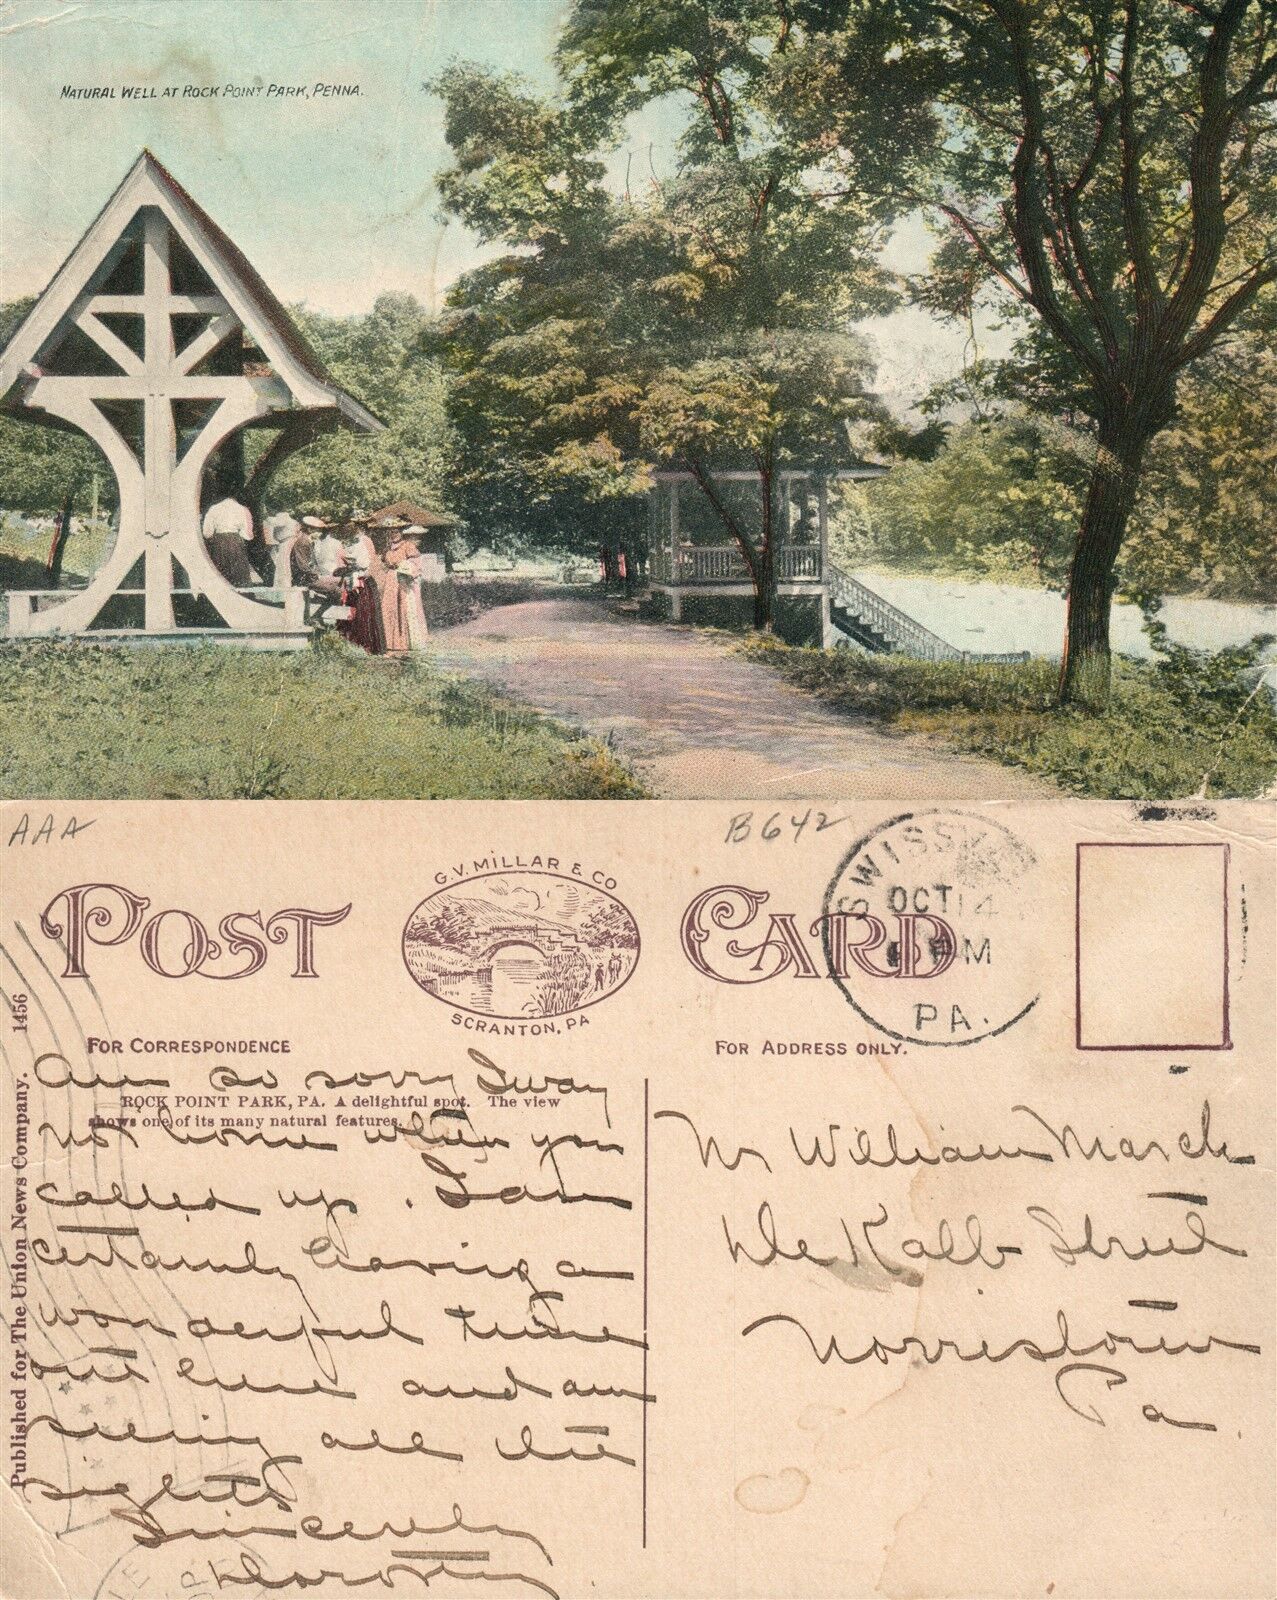 NATURAL WELL AT ROCK POINT PARK, PENNA.
AAA
B642
POST CARD
G.V. MILLAR & CO
SCRANTON, PA
SWISSV
OCT 14
PM
PA.
FOR CORRESPONDENCE
FOR ADDRESS ONLY.
ROCK POINT PARK, PA. A delightful spot. The view
shows one of its many natural features.
Published for The Union News Company. 1456
Am so sorry I way
not home when you
called up. I am
certainly having a
wonderful time
out here and am
seeing all the
sights
Sincerely
Dorothy.
Mr William March
De Kalb Street
Norristown
Pa.